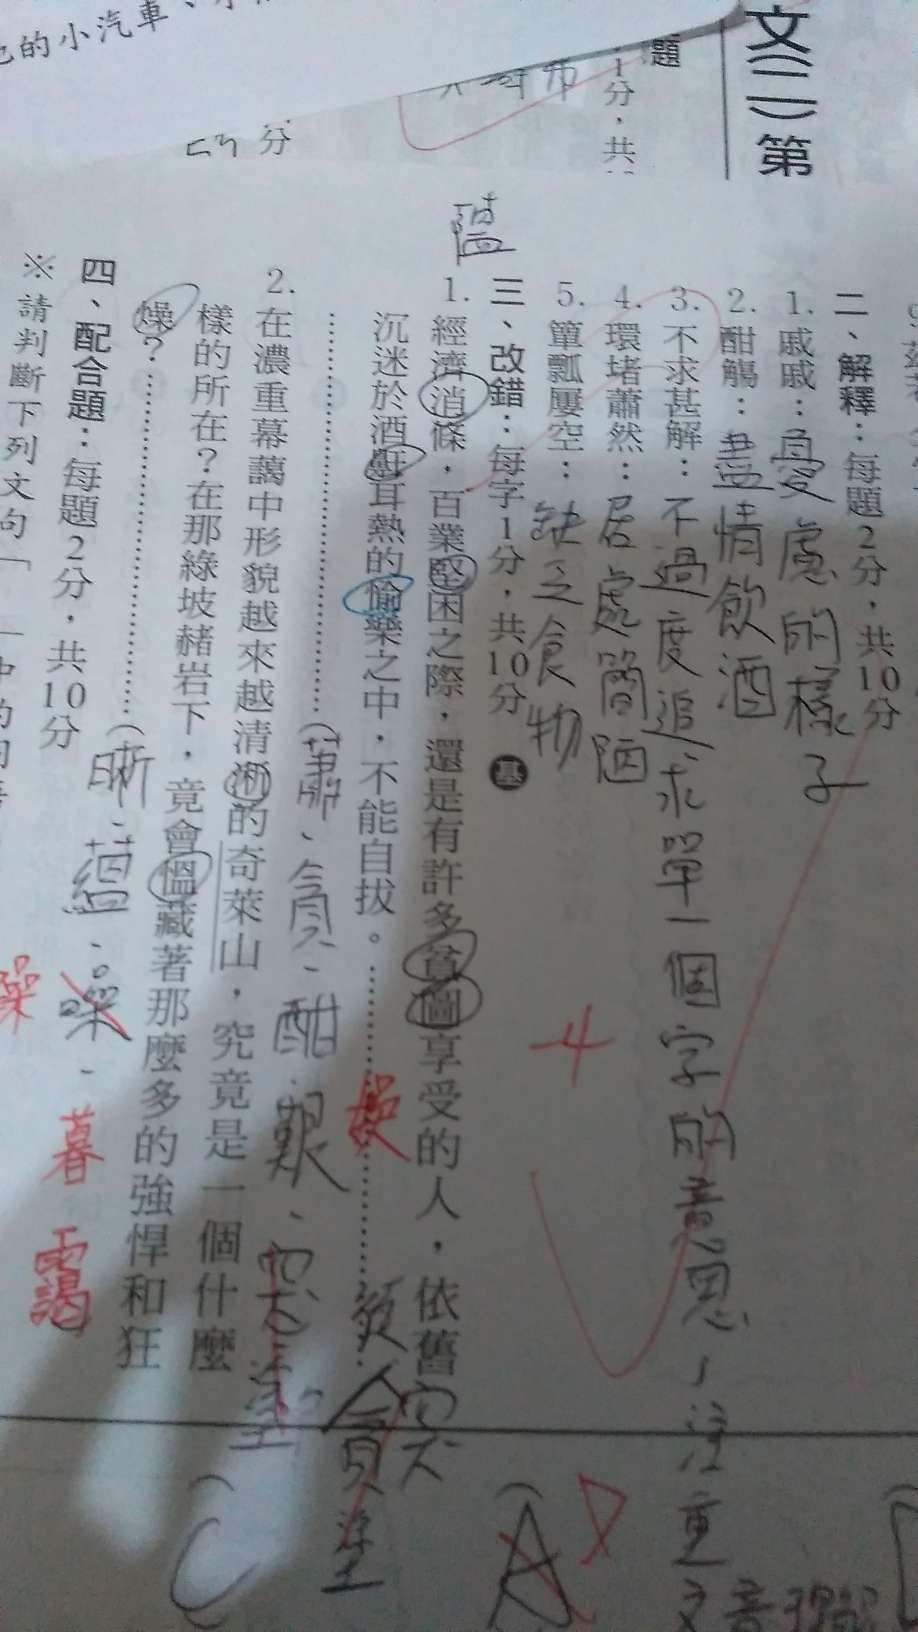 文(二)第
二、解釋：每題2分，共10分
1. 戚戚：憂慮的樣子
2. 酣觴：盡情飲酒
3. 不求甚解：不過度追求單一個字的意思，注重文意理解
4. 環堵蕭然：居處簡陋
5. 簞瓢屢空：缺乏食物
三、改錯：每字1分，共10分 基
1. 經濟消條，百業堅困之際，還是有許多貧圖享受的人，依舊
沉迷於酒酣耳熱的愉樂之中，不能自拔。
(蕭、貪、酣、艱、
娛
2. 在濃重幕藹中形貌越來越清淅的奇萊山，究竟是一個什麼
樣的所在？在那綠坡赭岩下，竟會慍藏著那麼多的強悍和狂
燥？
(晰、蘊、噪、暮 靄
躁
四、配合題：每題2分，共10分
※請判斷下列文句「
-4
題
1分，共
分
的小汽車、